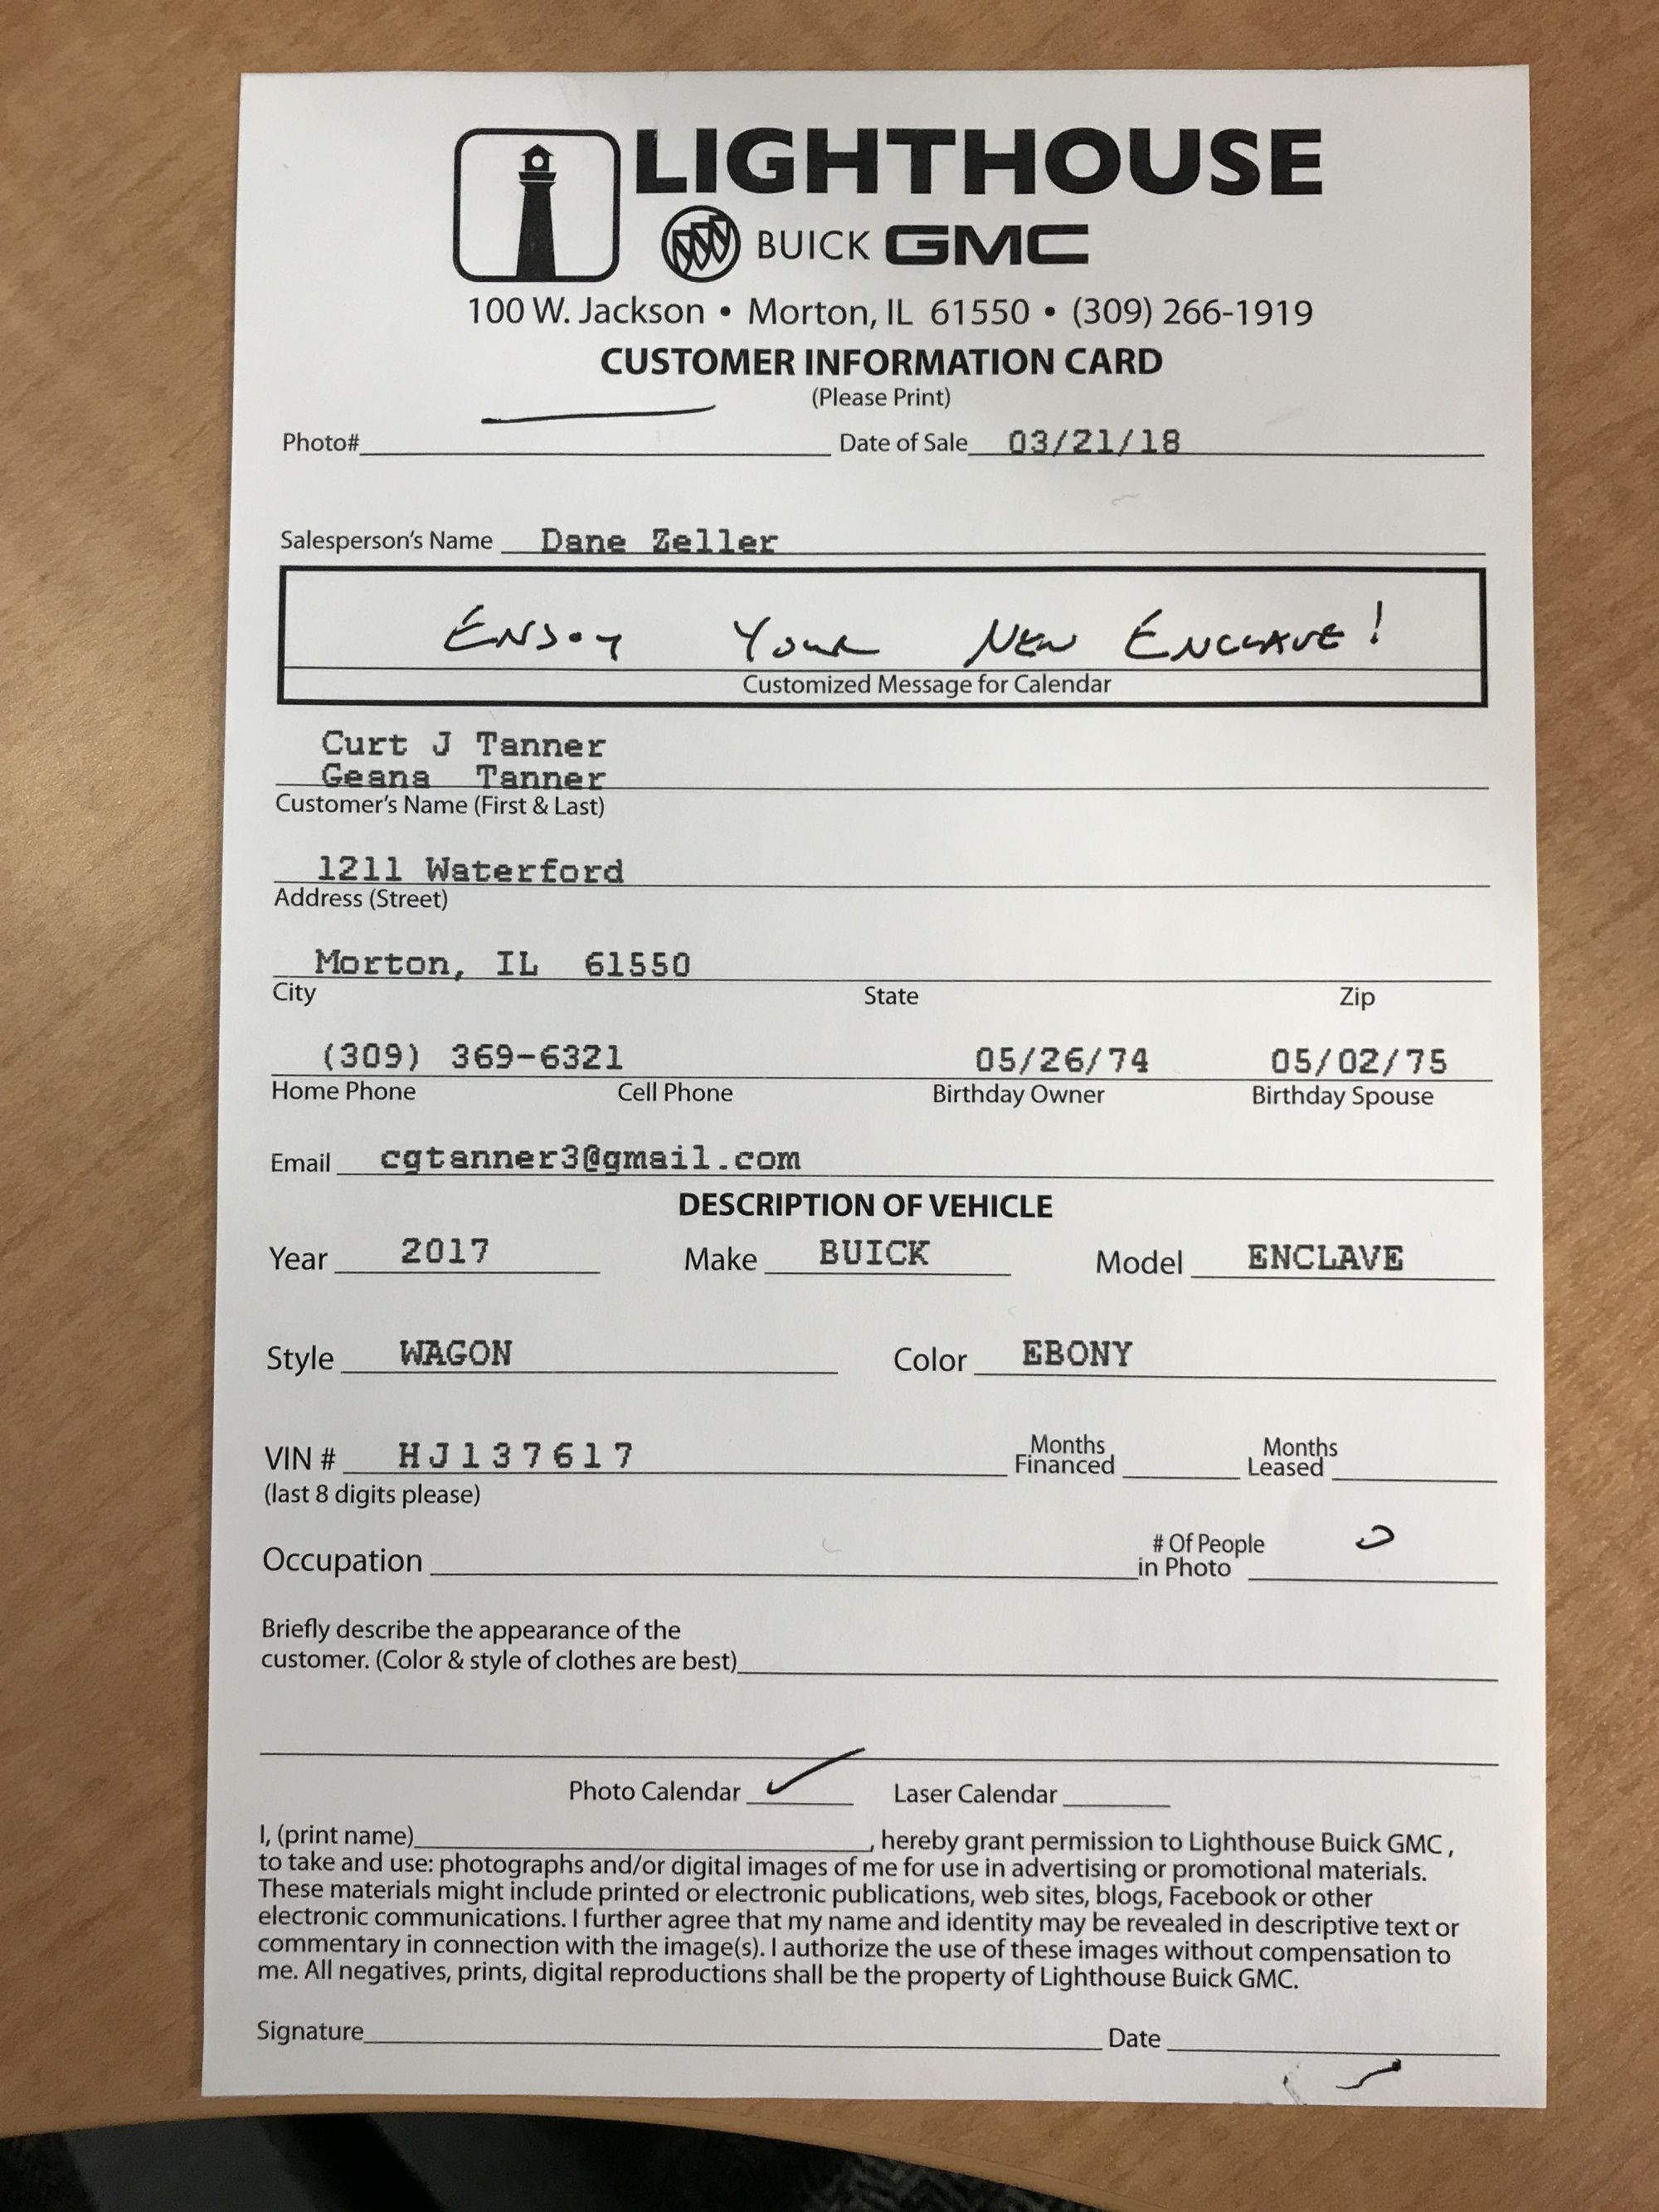 LIGHTHOUSE
BUICK GMC
100 W. Jackson • Morton, IL 61550 • (309) 266-1919
CUSTOMER INFORMATION CARD
(Please Print)
Photo# Date of Sale 03/21/18
Salesperson's Name Dane Zeller
Enjoy Your New Enclave!
Customized Message for Calendar
Curt J Tanner
Geana Tanner
Customer's Name (First & Last)
1211 Waterford
Address (Street)
Morton, IL 61550
City State Zip
(309) 369-6321 05/26/74 05/02/75
Home Phone Cell Phone Birthday Owner Birthday Spouse
Email cgtanner3@gmail.com
DESCRIPTION OF VEHICLE
Year 2017 Make BUICK Model ENCLAVE
Style WAGON Color EBONY
VIN # HJ137617 Months Financed Months Leased
(last 8 digits please)
Occupation # Of People in Photo
Briefly describe the appearance of the
customer. (Color & style of clothes are best)
Photo Calendar ✓ Laser Calendar
I, (print name) , hereby grant permission to Lighthouse Buick GMC ,
to take and use: photographs and/or digital images of me for use in advertising or promotional materials.
These materials might include printed or electronic publications, web sites, blogs, Facebook or other
electronic communications. I further agree that my name and identity may be revealed in descriptive text or
commentary in connection with the image(s). I authorize the use of these images without compensation to
me. All negatives, prints, digital reproductions shall be the property of Lighthouse Buick GMC.
Signature Date